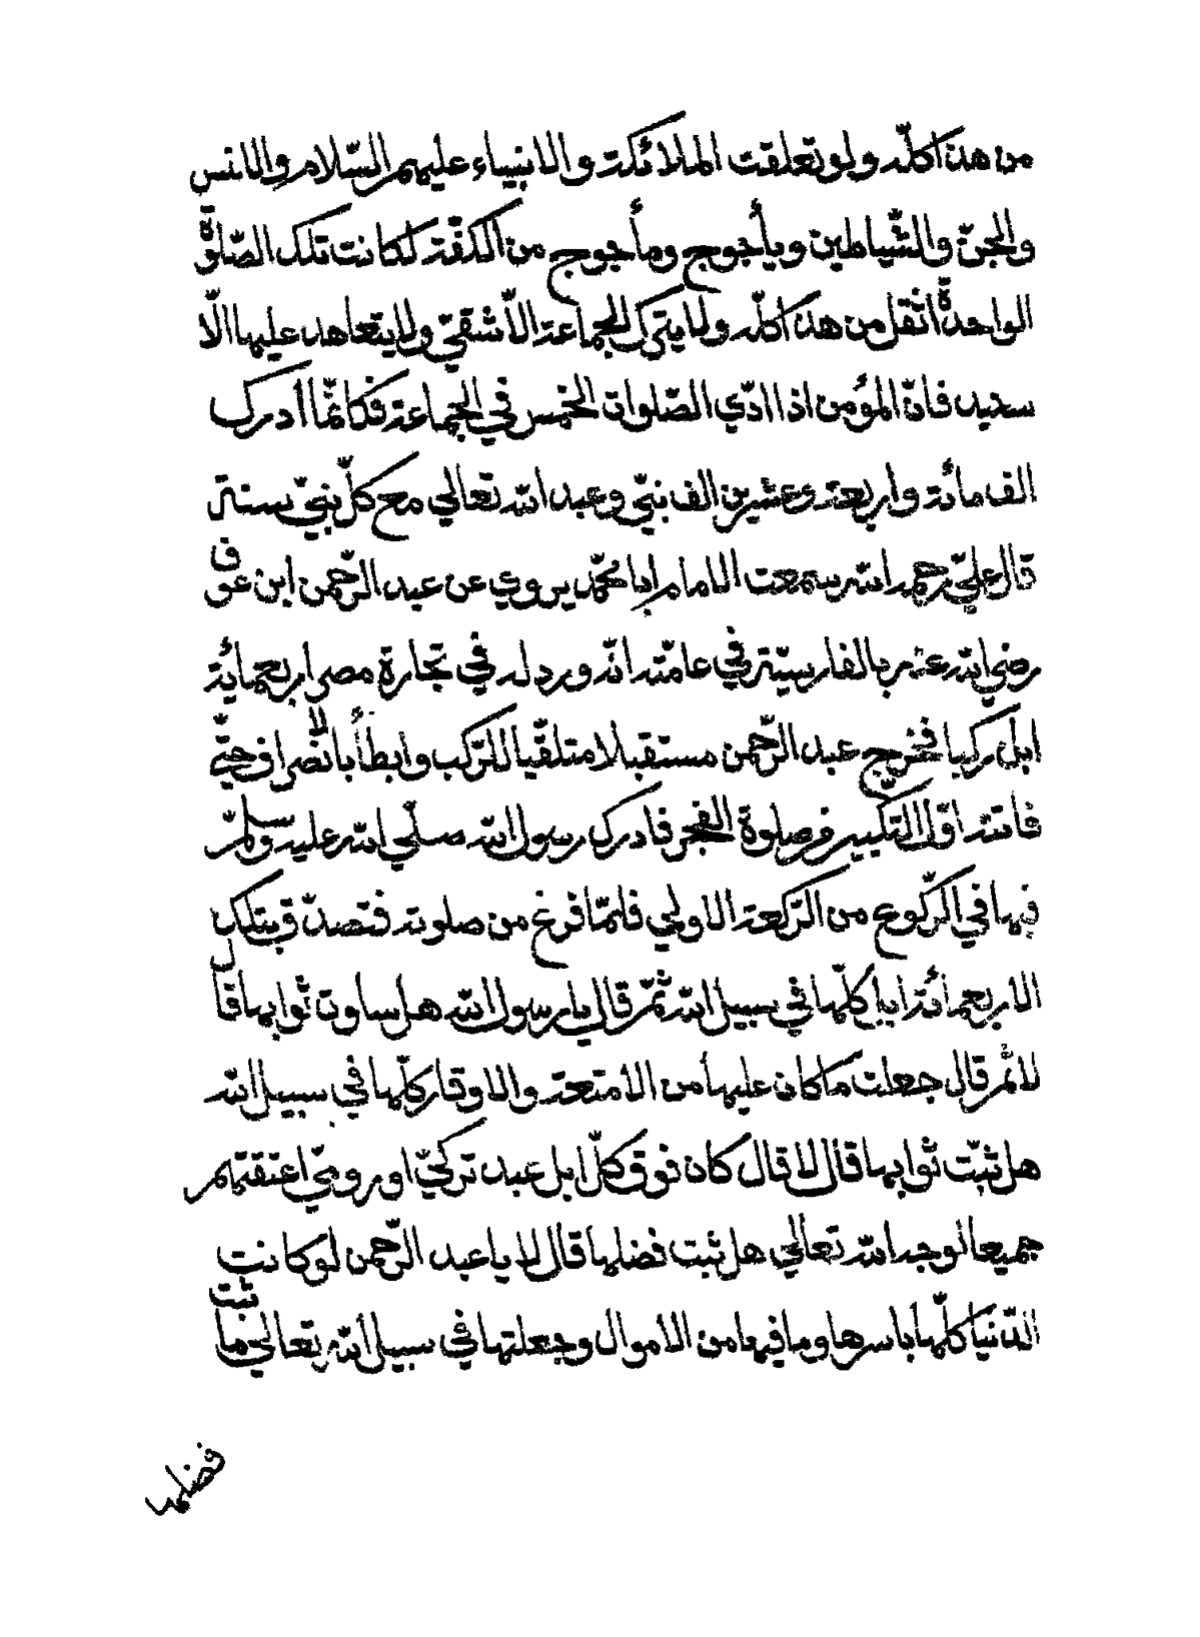 من هذا كلّه ولو تعلقت الملائكة والانبياء عليهم السّلام والانس
والجنّ والشّياطين ويأجوج ومأجوج من الكفّة لكانت تلك الصّلوة
الواحدة اثقل من هذا كلّه ولا يترك الجماعة الّا شقيّ ولا يتعاهد عليها الّا
سعيد فانّ المؤمن اذا ادّي الصّلوات الخمس في الجماعة فكانّما أدرك
الف مائة وأربعة وعشرين الف نبيّ وعبد الله تعالي مع كلّ نبيّ سنة
قال عليّ رحمه الله سمعت الامام ابا محمّد يروي عن عبد الرّحمن ابن عوف
رضي الله عنه بالفارسيّة في عامّته انّه ورد له في تجارة مصر اربعمائة
ابل ركبا فخرج عبد الرّحمن مستقبلا متلقّيا للرّكب وابطأ بالانصراف حتّي
فاتته اوّل التكبير من صلوة الفجر فادرك رسول الله صلّي الله عليه وسلّم
فيها في الرّكوع من الرّكعة الاولي فلمّا فرغ من صلوته فتصدّق بتلك
الاربعمائة ابل كلّها في سبيل الله ثمّ قال يا رسول الله هل ساوت ثوابها قال
لا ثمّ قال جعلت ما كان عليها من الأمتعة والاوقار كلّها في سبيل الله
هل ثبّت ثوابها قال لا قال كان فوق كلّ ابل عبد تركيّ او روميّ اعتقتهم
جميعا لوجه الله تعالي هل ثبت فضلها قال لا يا عبد الرّحمن لو كانت
الدّنيا كلّها بأسرها وما فيها من الأموال وجعلتها في سبيل الله تعالي ما ثبت
فضلها